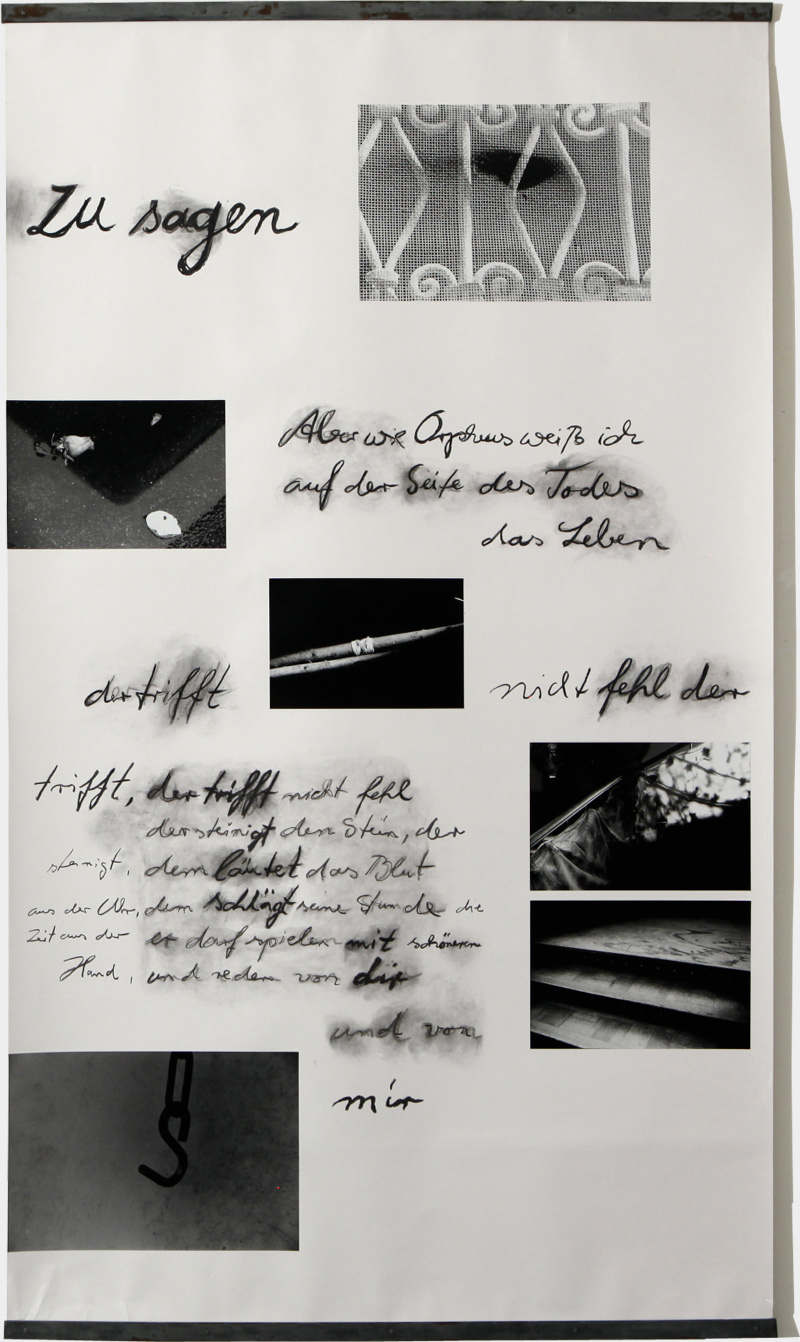 Zu sagen
Aber wie Orpheus weiß ich
auf der Seite des Todes
das Leben
der trifft nicht fehl der
trifft, der trifft nicht fehl
der steinigt den Stein, der
steinigt, dem läutet das Blut
aus der Uhr, dem schlägt seine Stunde die
Zeit aus der er darf spielen mit schöneren
Hand, und reden von dir
und von
mir